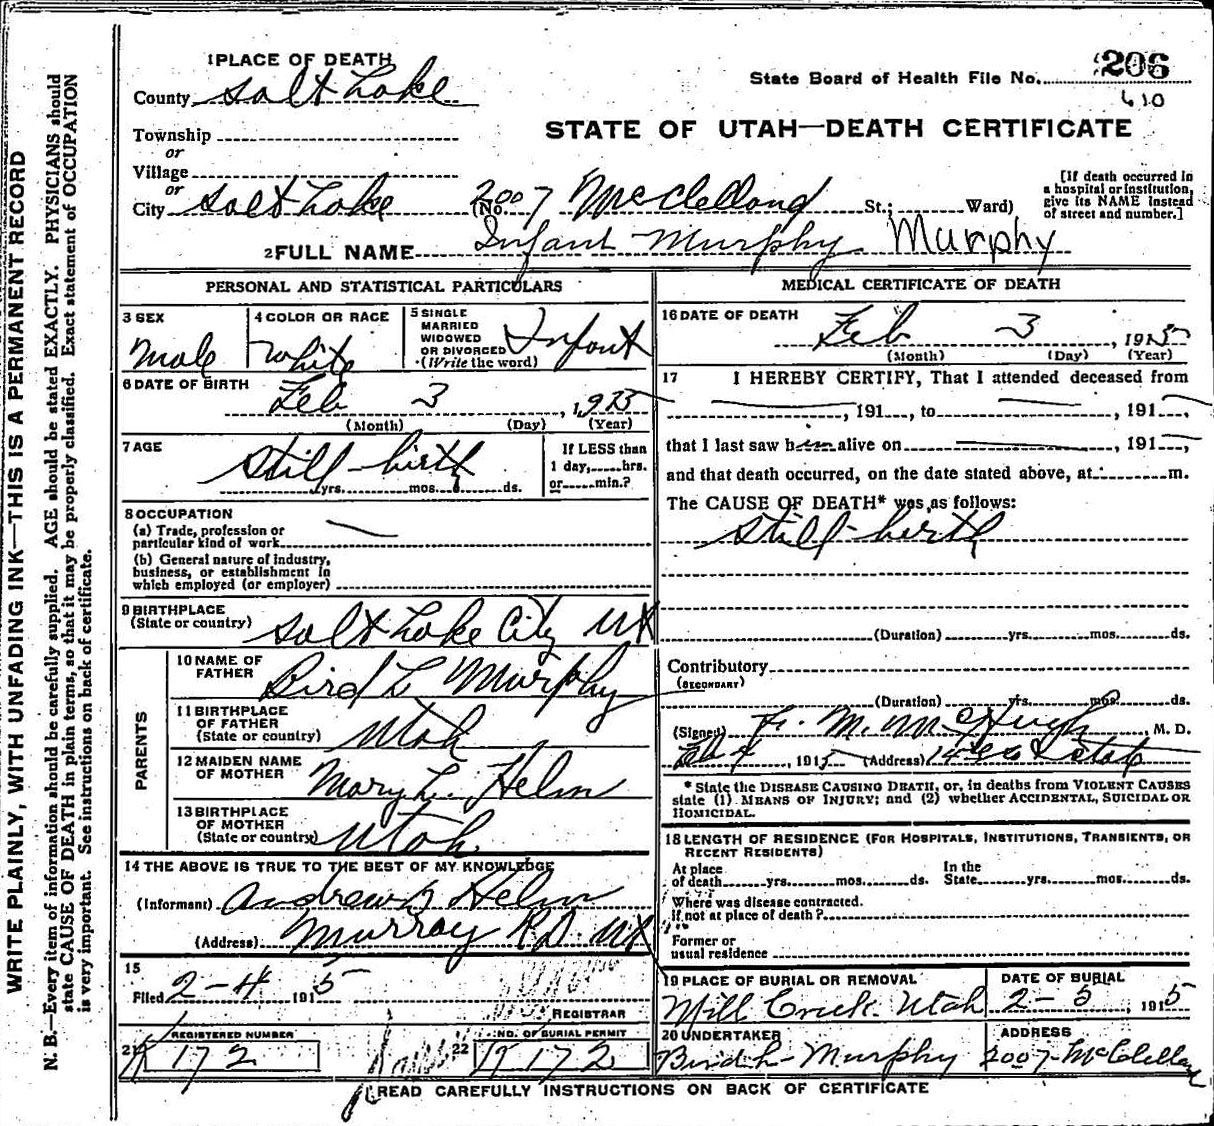 WRITE PLAINLY, WITH UNFADING INK—THIS IS A PERMANENT RECORD
N. B.—Every item of information should be carefully supplied. AGE should be stated EXACTLY. PHYSICIANS should
state CAUSE OF DEATH in plain terms, so that it may be properly classified. Exact statement of OCCUPATION
is very important. See instructions on back of certificate.
1 PLACE OF DEATH
County Salt Lake
Township
or
Village
or
City Salt Lake (No. 2007 McClelland St.; Ward)
State Board of Health File No. 206
610
STATE OF UTAH—DEATH CERTIFICATE
[If death occurred in
a hospital or institution,
give its NAME instead
of street and number.]
2 FULL NAME Infant Murphy Murphy
PERSONAL AND STATISTICAL PARTICULARS
3 SEX
Male
4 COLOR OR RACE
White
5 SINGLE
MARRIED
WIDOWED
OR DIVORCED
(Write the word)
Infant
6 DATE OF BIRTH
Feb 3, 1915
(Month) (Day) (Year)
7 AGE
Still-birth
yrs. mos. ds.
If LESS than
1 day, hrs.
or min.?
8 OCCUPATION
(a) Trade, profession or
particular kind of work
(b) General nature of industry,
business, or establishment in
which employed (or employer)
9 BIRTHPLACE
(State or country)
Salt Lake City Ut
PARENTS
10 NAME OF
FATHER
Bird L Murphy
11 BIRTHPLACE
OF FATHER
(State or country)
Utah
12 MAIDEN NAME
OF MOTHER
Mary L. Helm
13 BIRTHPLACE
OF MOTHER
(State or country)
Utah.
14 THE ABOVE IS TRUE TO THE BEST OF MY KNOWLEDGE
(Informant) Andrew Helm
(Address) Murray RD Ut
15
Filed 2-4 1915
REGISTRAR
REGISTERED NUMBER
21 K 172
NO. OF BURIAL PERMIT
22 K 172
MEDICAL CERTIFICATE OF DEATH
16 DATE OF DEATH
Feb 3, 1915
(Month) (Day) (Year)
17 I HEREBY CERTIFY, That I attended deceased from
, 191 , to , 191 ,
that I last saw him alive on , 191 ,
and that death occurred, on the date stated above, at m.
The CAUSE OF DEATH* was as follows:
Still-birth
(Duration) yrs. mos. ds.
Contributory
(SECONDARY)
(Duration) yrs. mos. ds.
(Signed) F. M. McHugh, M. D.
Feb 4, 1915 (Address)
* State the DISEASE CAUSING DEATH, or, in deaths from VIOLENT CAUSES
state (1) MEANS OF INJURY; and (2) whether ACCIDENTAL, SUICIDAL OR
HOMICIDAL.
18 LENGTH OF RESIDENCE (FOR HOSPITALS, INSTITUTIONS, TRANSIENTS, OR
RECENT RESIDENTS)
At place
of death yrs. mos. ds.
In the
State yrs. mos. ds.
Where was disease contracted.
If not at place of death?
Former or
usual residence
19 PLACE OF BURIAL OR REMOVAL
Mill Creek. Utah
DATE OF BURIAL
2-5, 1915
20 UNDERTAKER
Bird L Murphy
ADDRESS
2007-McClelland
READ CAREFULLY INSTRUCTIONS ON BACK OF CERTIFICATE